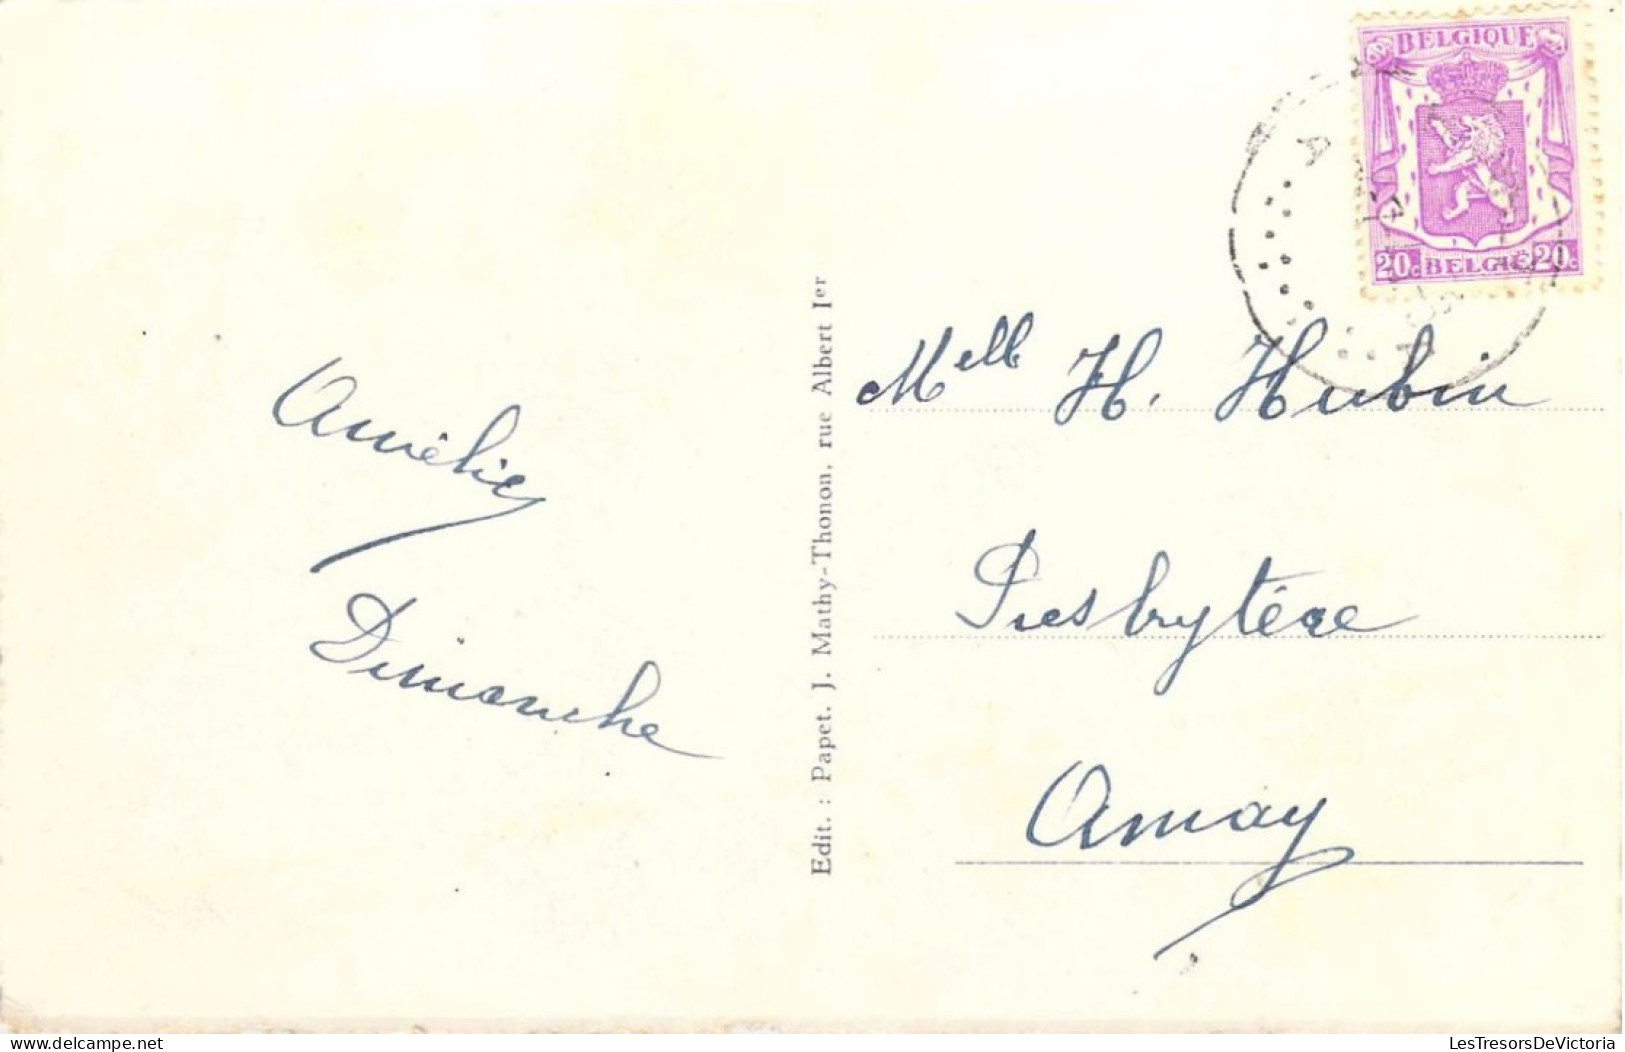 BELGIQUE
20c BELGIË 20c
Amélie
Dimanche
Edit. : Papet. J. Mathy-Thonon, rue Albert Ier
Melle H. Hubin
Presbytère
Amay
delcampe.net
LesTresorsDeVictoria